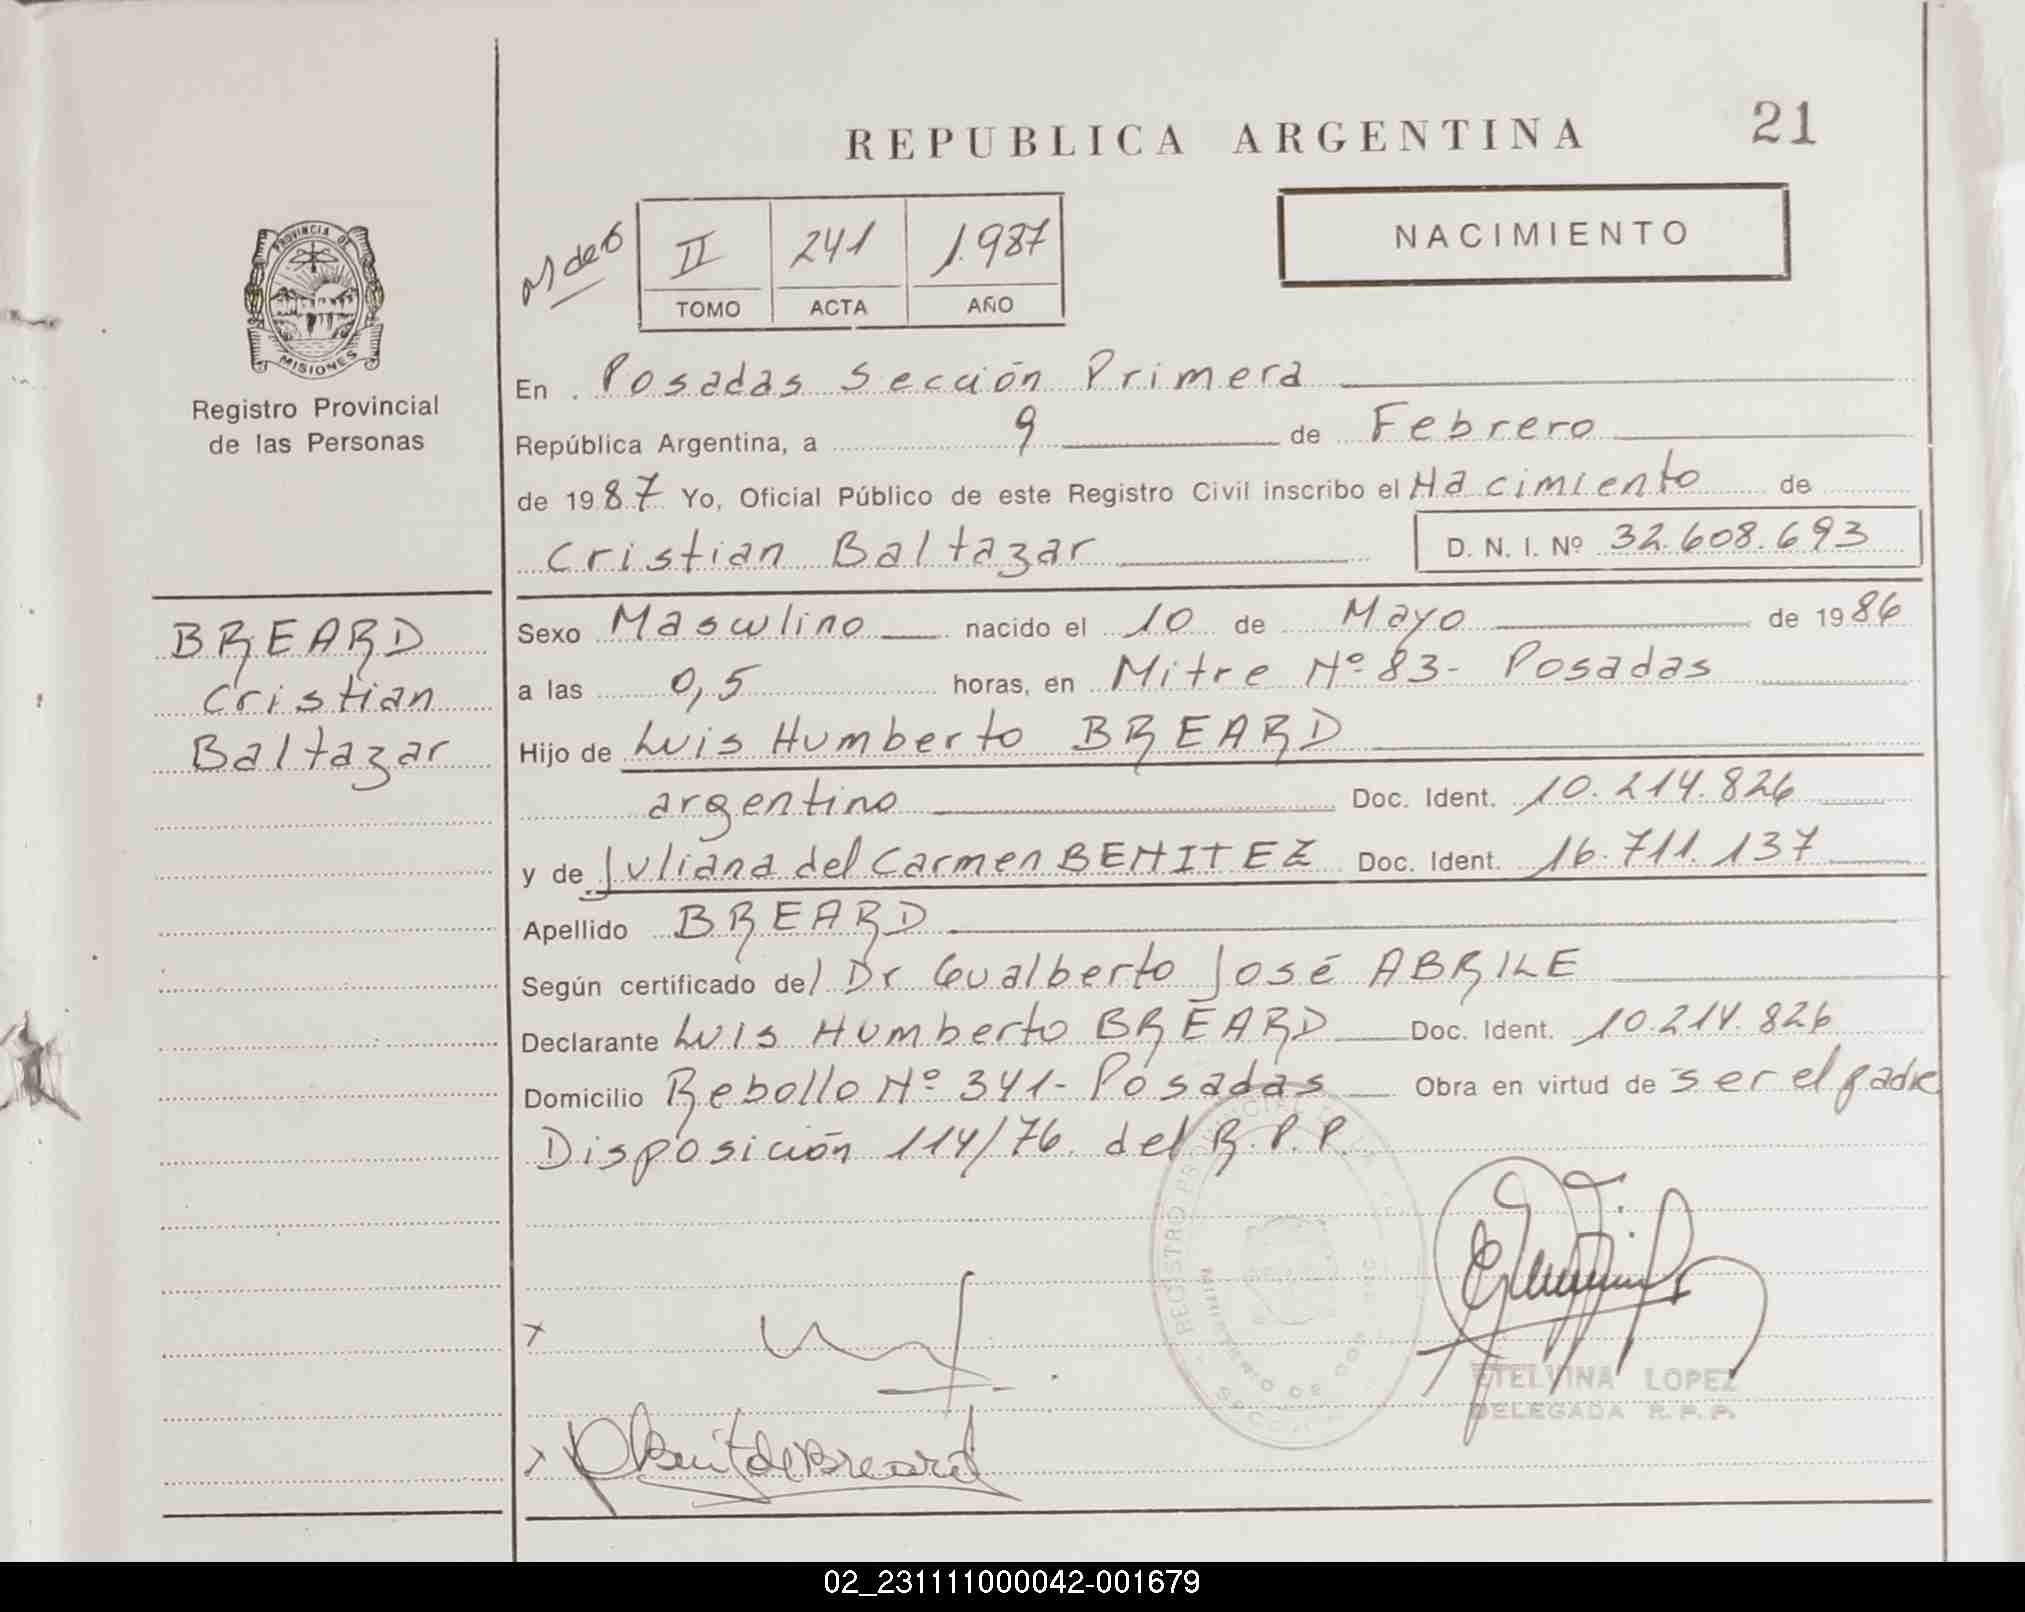 REPUBLICA ARGENTINA 21
NACIMIENTO
II 241 1.987
TOMO ACTA AÑO
PROVINCIA DE
MISIONES
Registro Provincial
de las Personas
En Posadas Sección Primera
República Argentina, a 9 de Febrero
de 1987 Yo, Oficial Público de este Registro Civil inscribo el Nacimiento de
Cristian Baltazar D. N. I. Nº 32.608.693
BREARD
Cristian
Baltazar
Sexo Masculino nacido el 10 de Mayo de 1986
a las 0,5 horas, en Mitre Nº 83- Posadas
Hijo de Luis Humberto BREARD
argentino Doc. Ident. 10.214.826
y de Juliana del Carmen BENITEZ Doc. Ident. 16.711.137
Apellido BREARD
Según certificado del Dr Gualberto José ABRILE
Declarante Luis Humberto BREARD Doc. Ident. 10.214.826
Domicilio Rebollo Nº 341- Posadas Obra en virtud de ser el padre
Disposición 114/76. del R.P.P.
ETELVINA LOPEZ
DELEGADA R.P.P.
02_231111000042-001679